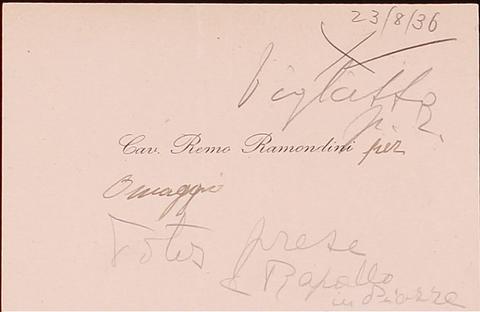 23/8/36
Vigliatto
p. r.
Cav. Remo Ramondini per
Omaggio
Fotos prese
a Rapallo
in Piazza